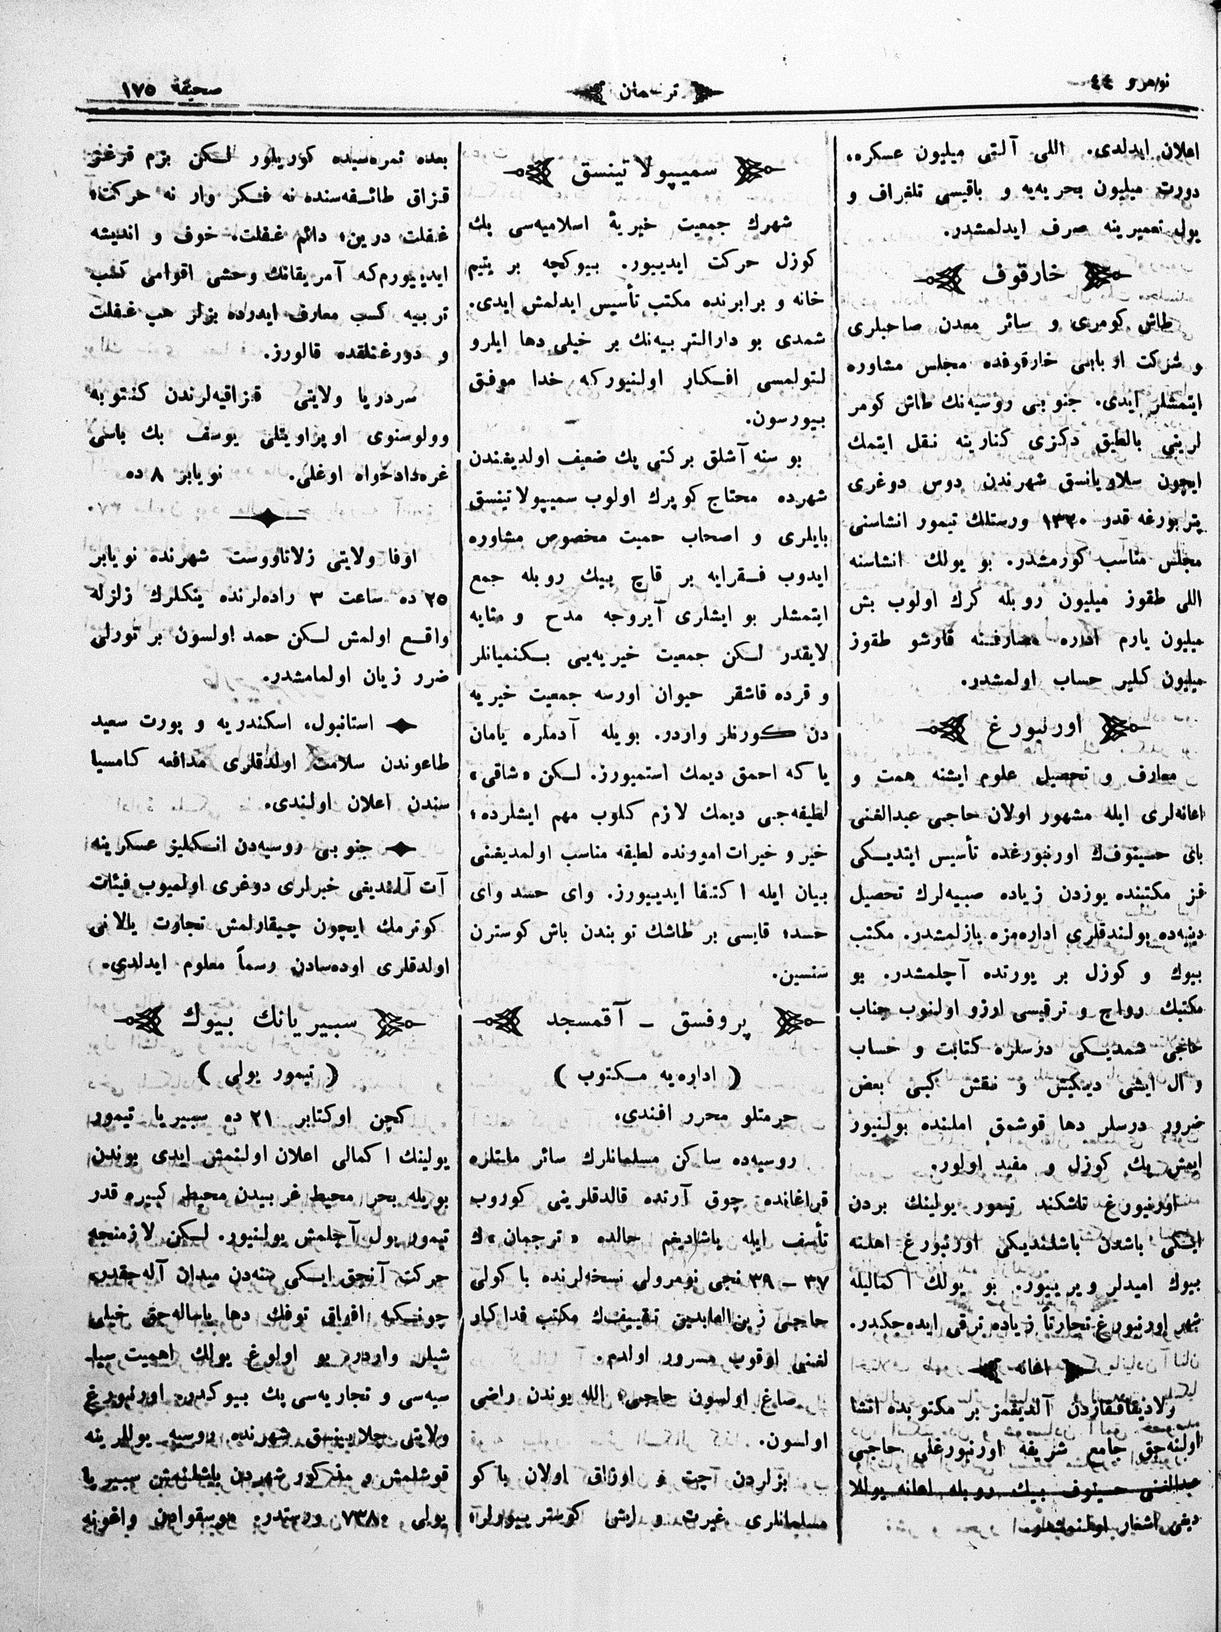 نومرو ٤٤
ترجمان
صحیفهٔ ١٧٥
اعلان ایدلدی. اللی آلتی میلیون عسکره،
دورت میلیون بحریه‌یه و باقیسی تلغراف و
یول تعمیرینه صرف ایدلمشدر.
خارقوف
طاش کومری و سائر معدن صاحبلری
و شرکت اربابی خارقوفده مجلس مشاوره
ایتمشلر ایدی. جنوبی روسیه‌نك طاش کومر
لرینی بالطیق دکزی کنارینه نقل ایتمك
ایچون سلاویانسق شهرندن دوس دوغری
پتربورغه قدر ١٣٢٠ ورستلك تیمور انشاسنی
مجلس مناسب کورمشدر. بو یولك انشاسنه
اللی طقوز میلیون روبله کرك اولوب بش
میلیون یارم اداره مصارفنه قارشو طقوز
میلیون کلیر حساب اولمشدر.
اورنبورغ
معارف و تحصیل علوم ایشنه همت و
اعانه‌لری ایله مشهور اولان حاجی عبدالغنی
بای حسینوفك اورنبورغده تأسیس ایتدیکی
قز مکتبنده یوزدن زیاده صبیه‌لرك تحصیل
دینیه‌ده بولندقلری اداره‌مزه یازلمشدر. مکتب
بیوك و کوزل بر یورتده آچلمشدر. بو
مکتبك رواج و ترقیسی ارزو اولنوب جناب
حاجی شمدیکی درسلره کتابت و حساب
و ال ایشی دیکیش و نقش کبی بعض
ضرور درسلر دها قوشمق املنده بولنیور
ایمش پك کوزل و مفید اولور.
اورنبورغ تاشکند تیمور یولینك بردن
ایکی باشدن باشلندیکی اورنبورغ اهلنه
بیوك امیدلر ویریبور. بو یولك اکمالیله
شهر اورنبورغ تجارتاً زیاده ترقی ایده‌جکدر.
اعانه
ولادیقافقازدن آلدیغمز بر مکتوبده انشا
اولنه‌جق جامع شریفه اورنبورغلی حاجی
عبدالغنی حسینوف بیك روبله اعانه یوللا
دیغی اشعار اولنمشدر.
سمیپولاتینسق
شهرك جمعیت خیریهٔ اسلامیه‌سی پك
کوزل حرکت ایدیبور. بیوکچه بر یتیم
خانه و برابرنده مکتب تأسیس ایدلمش ایدی.
شمدی بو دارالتربیه‌نك بر خیلی دها ایلرو
لتولمسی افکار اولنیورکه خدا موفق
بیورسون.
بو سنه آشلق برکتی پك ضعیف اولدیغندن
شهرده محتاج کوپرك اولوب سمیپولاتینسق
بایلری و اصحاب حمیت مخصوص مشاوره
ایدوب فقرایه بر قاچ بیك روبله جمع
ایتمشلر بو ایشلری آیروجه مدح و ثنایه
لایقدر لکن جمعیت خیریه‌یی بکنمیانلر
و قرده قاشقر حیوان اورسه جمعیت خیریه
دن کورنلر واردر. بویله آدملره یامان
یا که احمق دیمك استمیورز. لکن «شاقی»
لطیفه‌جی دیمك لازم کلوب مهم ایشلرده؛
خیر و خیرات اموونده لطیفه مناسب اولمدیغنی
بیان ایله اکتفا ایدیبورز. وای حسد وای
حسد؛ قایسی بر طاشك توبندن باش کوسترن
سنسین.
پروفسق - آقمسجد
( اداره‌یه مکتوب )
حرمتلو محرر افندی.
روسیه‌ده ساکن مسلمانلرك سائر ملتلره
قراغانده چوق آرنده قالدقلرینی کوروب
تأسف ایله یاشادیغم حالده «ترجمان»ك
٣٧ - ٣٩ نجی نومرولی نسخه‌لرنده باکولی
حاجی زین‌العابدین تقییفك مکتب فداکار
لغنی اوقوب مسرور اولدم.
صاغ اولسون حاجی؛ الله یوندن راضی
اولسون.
بزلردن آچت و اوزاق اولان باکو
مسلمانلری غیرت و ایشی کوستریبورلر؛
بعده ثمره‌سیده کوریلور لکن بزم قرغز
قزاق طائفه‌سنده نه فکر وار نه حرکت؛
غفلت درین؛ دائم غفلت. خوف و اندیشه
ایدیبورم‌که آمریقانك وحشی اقوامی کسب
تربیه کسب معارف ایدرده بزلر هپ غفلت
و دورغنلقده قالورز.
سردریا ولایتی قزاقیه‌لرندن کنتوبه
وولوسنوی اوپراویتلی یوسف بك باسی
غره‌دادخواه اوغلی. نویابر ٨ ده
اوفا ولایتی زلاتاووست شهرنده نویابر
٢٥ ده ساعت ٣ راده‌لرنده یتکلرك زلزله
واقع اولمش لکن حمد اولسون بر تورلی
ضرر زیان اولمامشدر.
استانبول، اسکندریه و پورت سعید
طاعوندن سلامت اولدقلری مدافعه کامسیا
سندن اعلان اولندی.
جنوبی روسیه‌دن انکلیز عسکرینه
آت آلندیغی خبرلری دوغری اولمیوب فیئات
کوترمك ایچون چیقارلمش تجارت یالانی
اولدقلری اوده‌سادن رسماً معلوم ایدلدی.
سبیریانك بیوك
( تیمور یولی )
کچن اوکتابر ٢١ ده سبیریا تیمور
یولینك اکمالی اعلان اولنمش ایدی یوندن
بویله بحر محیط غربیدن محیط کبیره قدر
تیمور یول آچلمش بولنیور. لکن لازمنجه
حرکت آنجق ایکی سنه‌دن میدان آله‌جقدر.
چونکه افراق توفك دها یاصاله‌جق خیلی
شیلر واردر. بو اولوغ یولك اهمیت سیا
سیه‌سی و تجاریه‌سی پك بیوکدر. اورنبورغ
ولایتی چلابینسق شهرنده روسیه یوللرینه
قوشلمش و مذکور شهردن باشلنمش سبیریا
یولی ٧٣٨٠ ورستدر. موسقوادن واغونه